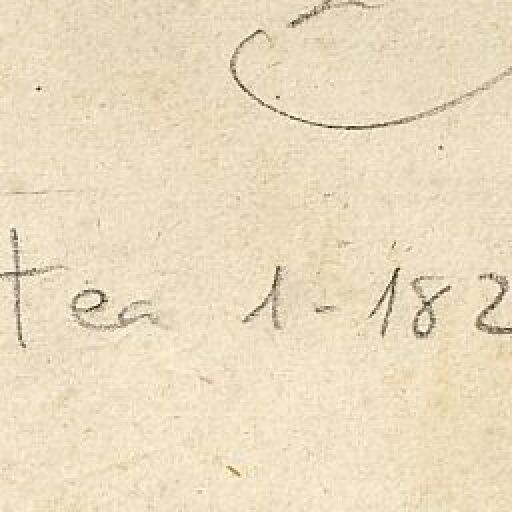 tea 1-182